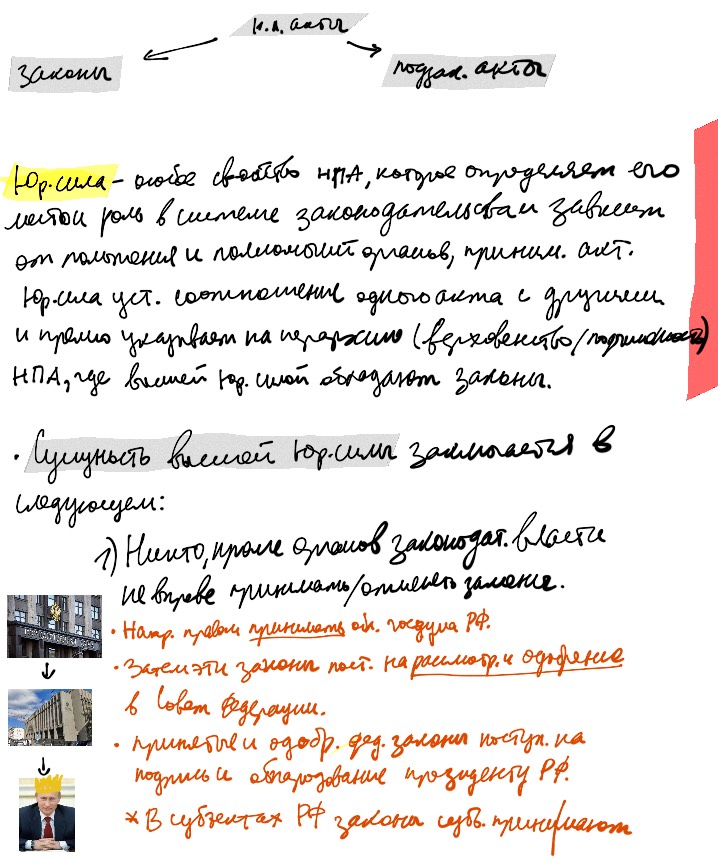 н.п. акты
законы
подзак. акты
Юр.сила – особое свойство НПА, которое определяет его
место и роль в системе законодательства и зависит
от положения и полномочий органов, приним. акт.
Юр.сила уст. соотношение одного акта с другими
и прямо указывает на иерархию (верховенство/подчинённость)
НПА, где высшей юр. силой обладают законы.
• Сущность высшей юр.силы заключается в
следующем:
1) Никто, кроме органов законодат. власти
не вправе принимать/отменять законы.
• Напр. правом принимать обл. госдума РФ.
• Затем эти законы пост. на рассмотр. и одобрение
в Совет Федерации.
• принятые и одобр. фед. законы поступ. на
подпись и обнародование президенту РФ.
* В субъектах РФ законы субъ. принимают